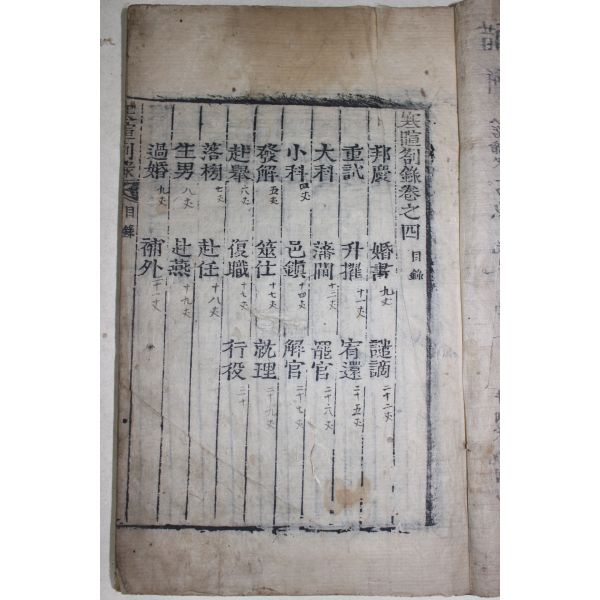 寒暄劄錄卷之四 目錄
邦慶 婚書九丈 譴謫二十二丈
重試 升擢十一丈 宥還二十五丈
大科 藩閫十二丈 罷官二十六丈
小科四丈 邑鎮十四丈 解官二十七丈
發解五丈 筮仕十七丈 就理二十九丈
赴舉六丈 復職十七丈 行役三十
落榜七丈 赴任十八丈
生男八丈 赴燕十九丈
過婚九丈 補外二十一丈
寒暄劄錄 目錄